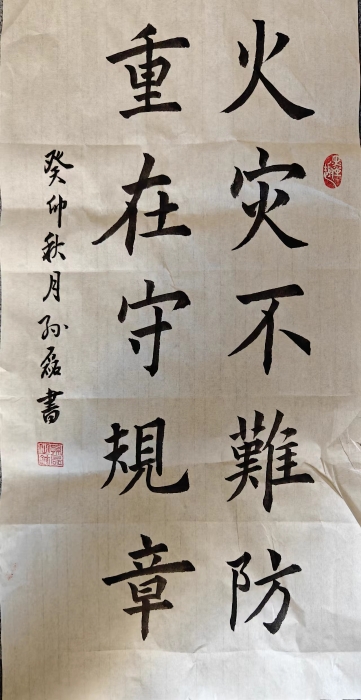 火灾不難防
重在守規章
癸卯秋月孙磊書